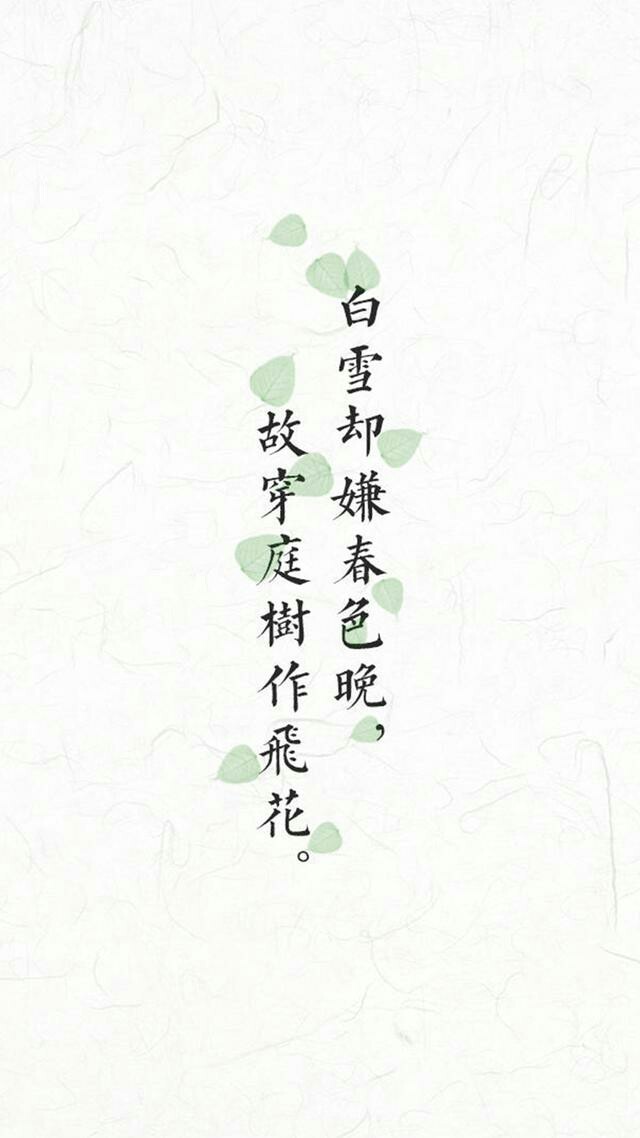 白雪却嫌春色晚，
故穿庭樹作飛花。